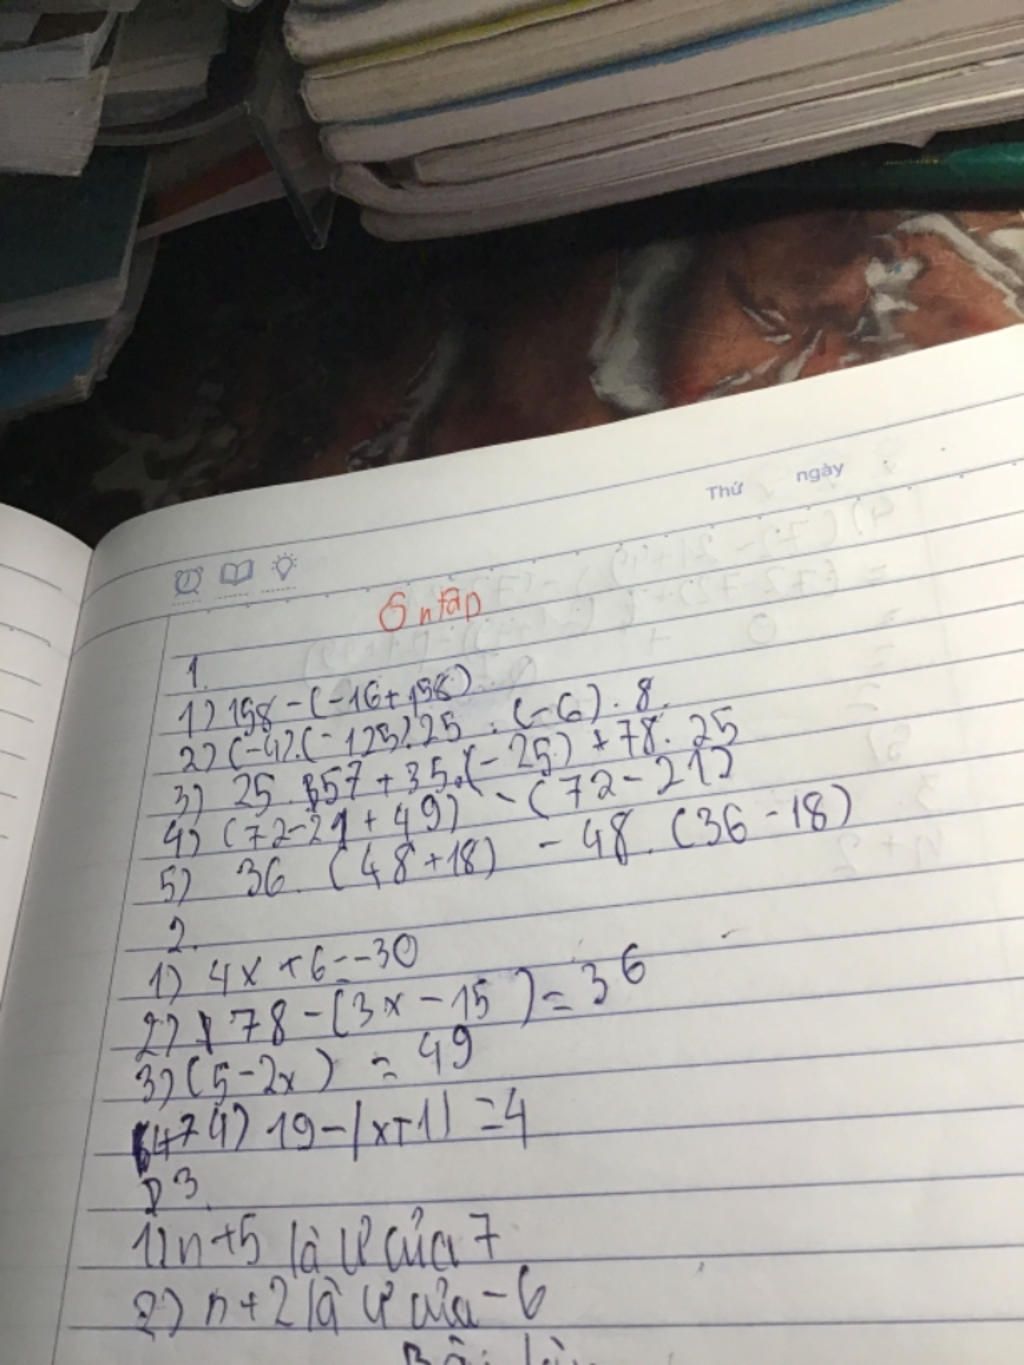 Thứ ngày
Ôn tập
1.
1) 158-(-16+158)
2) (-4).(-125).25.(-6).8.
3) 25.57+35.(-25)+78.25
4) (72-21+49)-(72-21)
5) 36.(48+18)-48.(36-18)
2.
1) 4x+6=-30
2) 78-(3x-15)=36
3) (5-2x)=49
4) 19-|x+1|=4
3
1) n+5 là Ư của 7
2) n+2 là Ư của -6